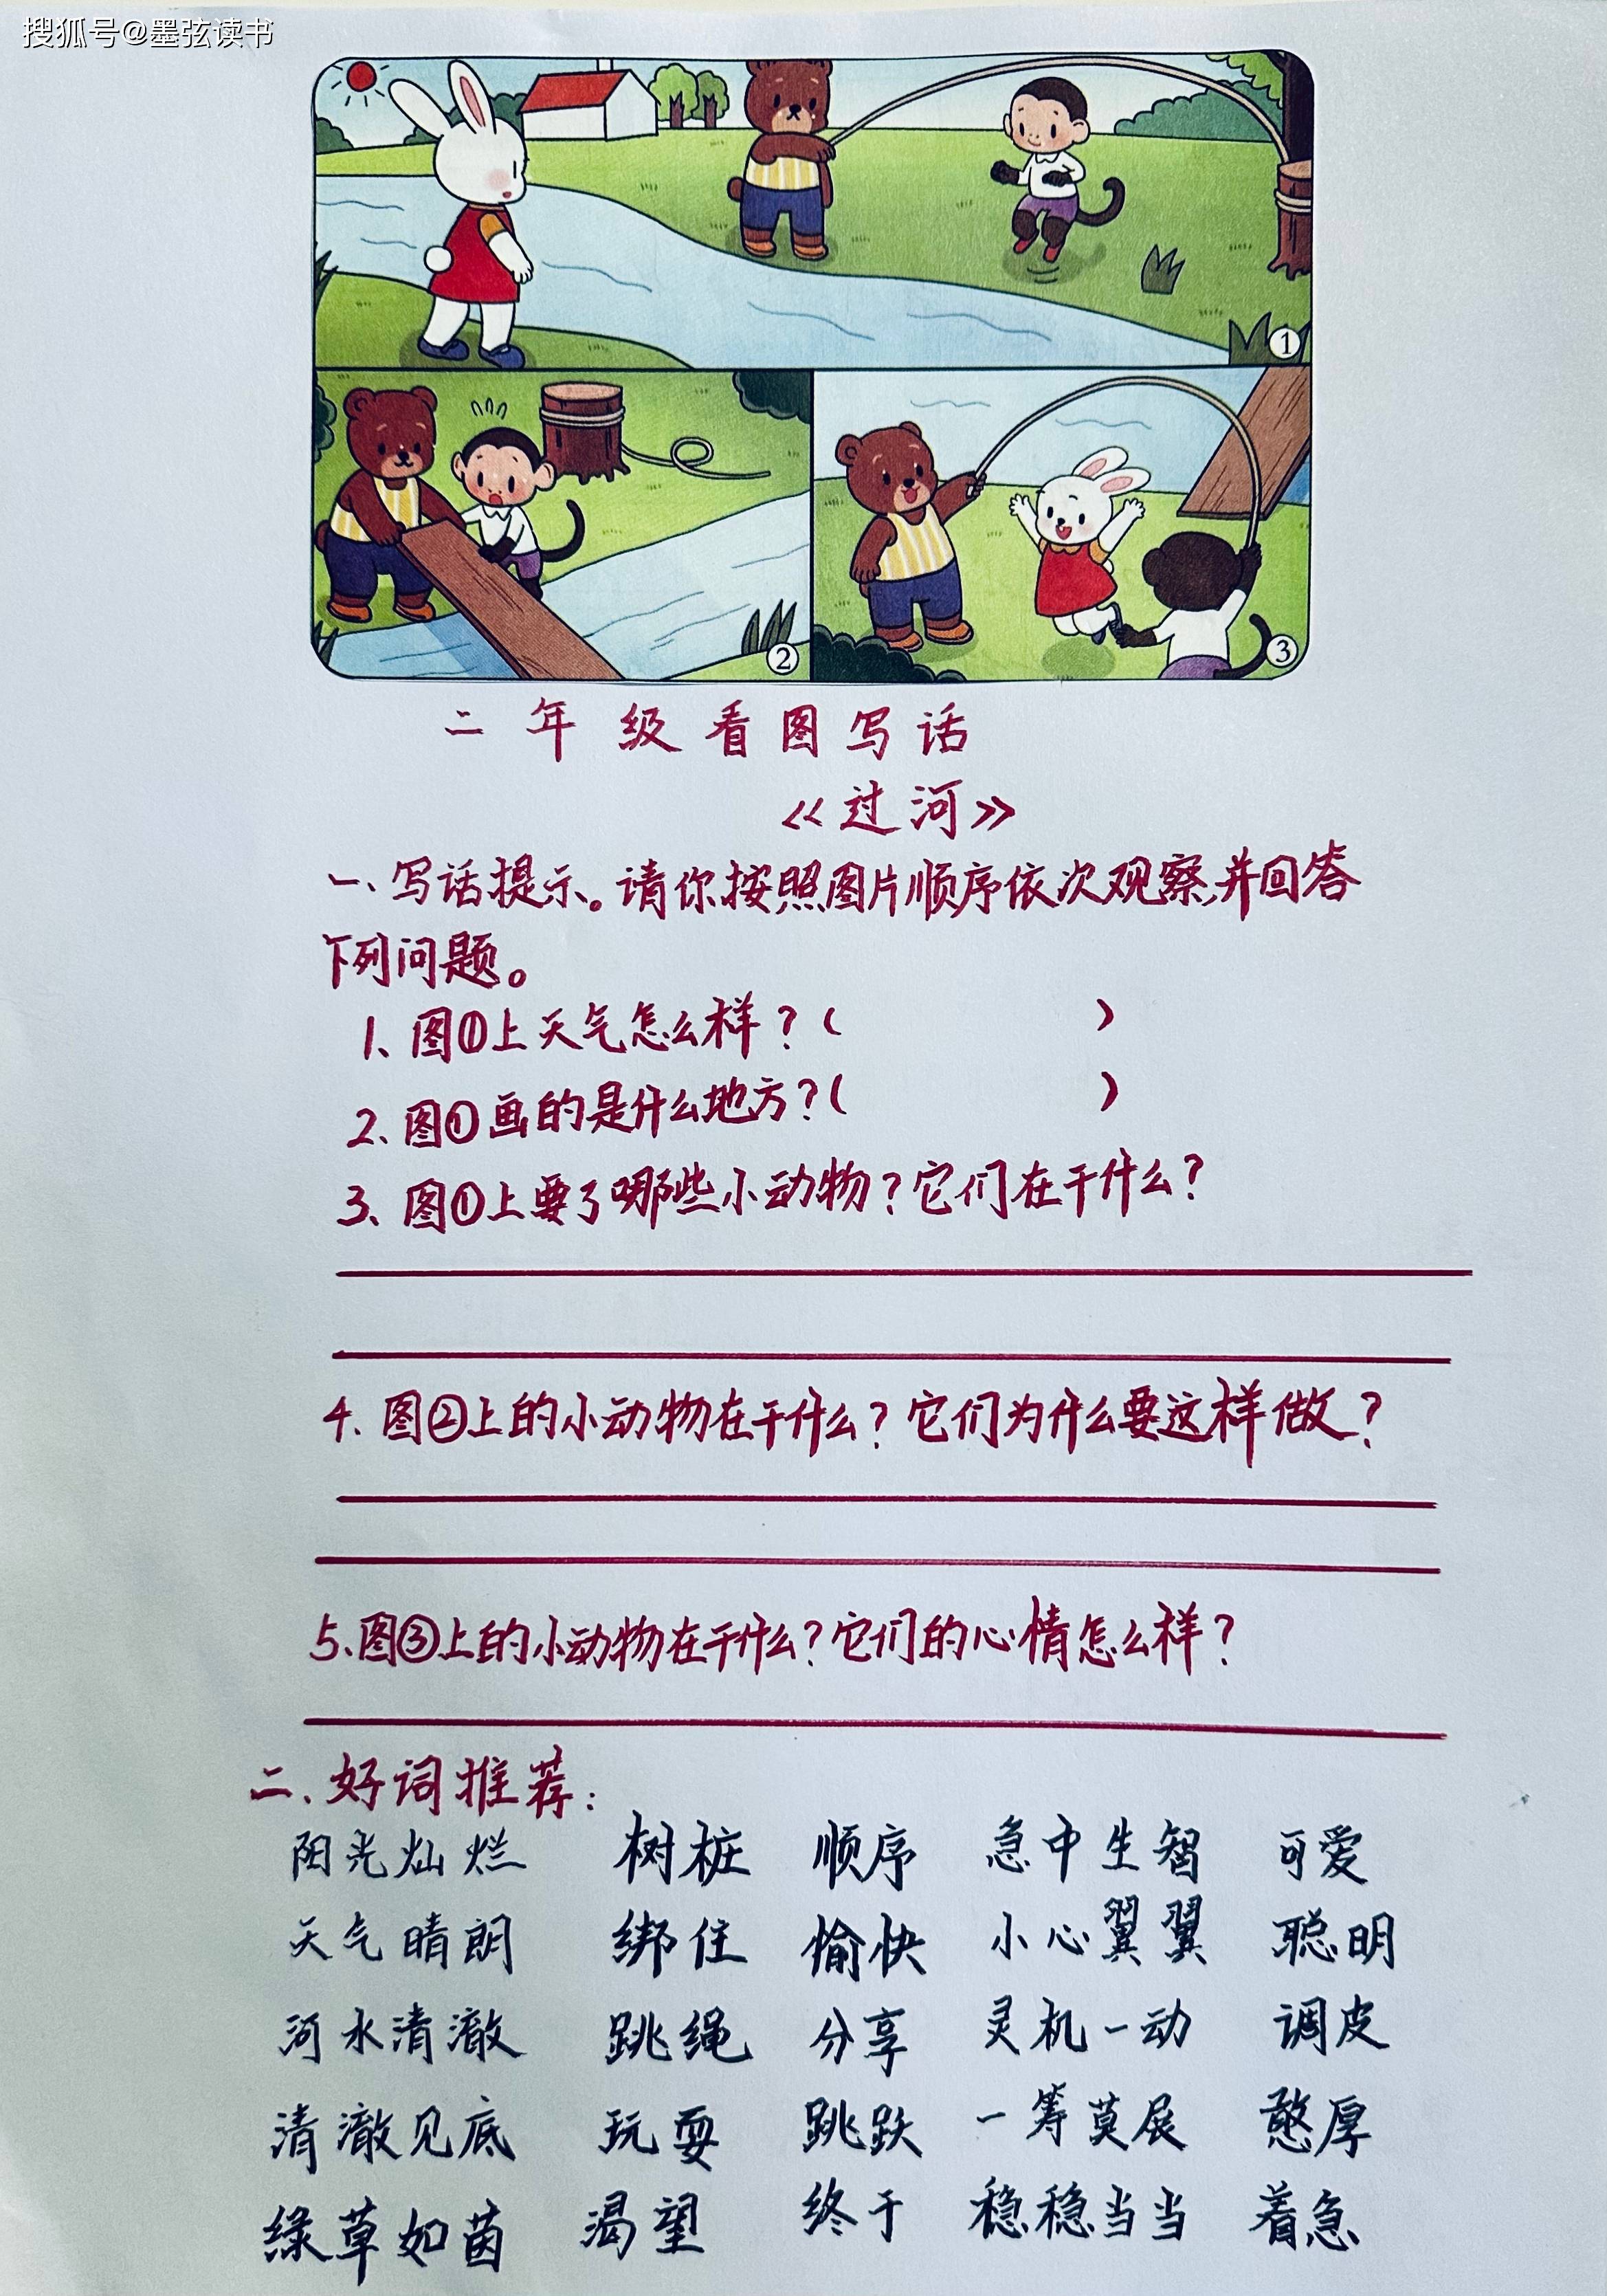 搜狐号@墨弦读书
①
②
③
二年级看图写话
《过河》
一、写话提示。请你按照图片顺序依次观察,并回答
下列问题。
1、图①上天气怎么样?( )
2、图①画的是什么地方?( )
3、图①上要了哪些小动物?它们在干什么?
4、图②上的小动物在干什么?它们为什么要这样做?
5、图③上的小动物在干什么?它们的心情怎么样?
二、好词推荐:
阳光灿烂 树桩 顺序 急中生智 可爱
天气晴朗 绑住 愉快 小心翼翼 聪明
河水清澈 跳绳 分享 灵机一动 调皮
清澈见底 玩耍 跳跃 一筹莫展 憨厚
绿草如茵 渴望 终于 稳稳当当 着急